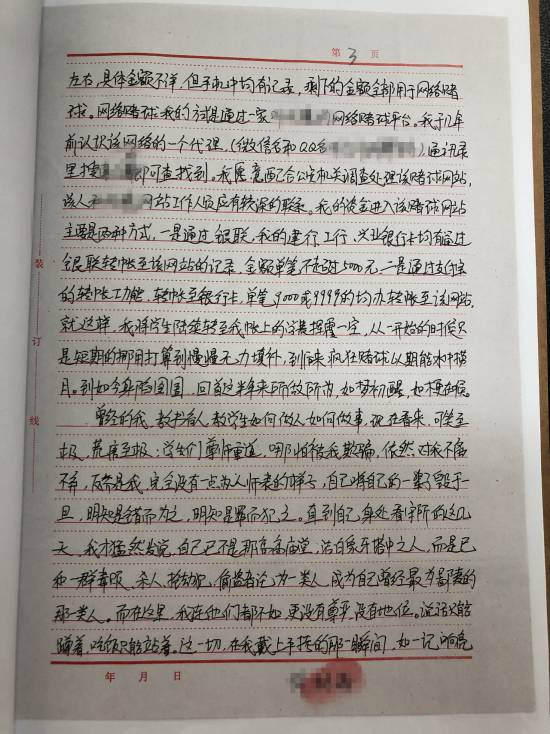 第 3 页
左右,具体金额不详,但手机中均有记录。剩下的金额全部用于网络赌
球。网络赌球我的方式是通过一家网络赌球平台。我于几年
前认识该网络的一个代理,(微信名和QQ名),通讯录
里搜即可查找到。我愿意配合公安机关调查处理该赌球网站,
该人和网站工作人员应有较深的联系。我的资金进入该赌球网站
主要是两种方式,一是通过银联,我的建行,工行,兴业银行卡均有通过
银联转帐至该网站的记录,金额单笔不超过5000元,二是通过支付宝
的转帐功能,转帐至银行卡,单笔9000或9999的均为转帐至该网站。
就这样,我将学生陆续转至我帐上的学费挥霍一空,从一开始的时候只
是短期的挪用打算到慢慢无力填补,到后来疯狂赌球以期能水中捞
月。到如今身陷囹圄,回首这半年来所做所为,如梦初醒,如梗在喉。
曾经的我,教书育人,教学生如何做人如何做事,现在看来,可笑至
极,荒唐至极;学生们尊师重道,哪怕被我欺骗,依然对我不离
不弃,反, 完全没有一点为人师表的样子,自己将自己的一辈子毁于一
旦,明知是错而为之,明知是罪而犯之。直到自己身处看守所的这几
天,我才猛然发觉,自己已不是那高高庙堂,洁白象牙塔中之人,而是已
和一群毒贩、杀人、抢劫犯,偷盗者沦为一类人,成为自己曾经最为鄙陋的
那一类人。而在这里,我连他们都不如,更没有尊严,没有地位。说话只能
蹲着,吃饭只能站着。这一切,在我戴上手铐的那一瞬间,如一记响
装
订
线
年 月 日